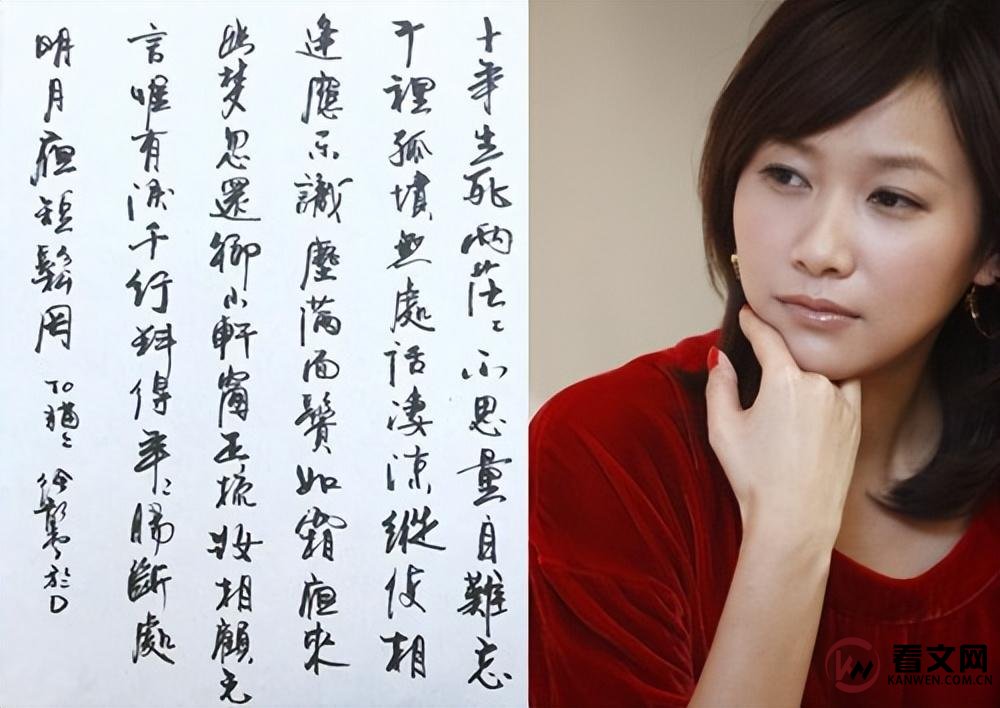 十年生死兩茫々不思量自難忘
千裡孤墳無處話凄涼縱使相
逢應不識塵滿面鬢如霜夜來
幽夢忽還鄉小軒窗正梳妝相顧无
言唯有淚千行料得年々腸斷處
明月夜短鬆岡 TO 貓々 徐靜蕾於D
看文网
KANWEN.COM.CN